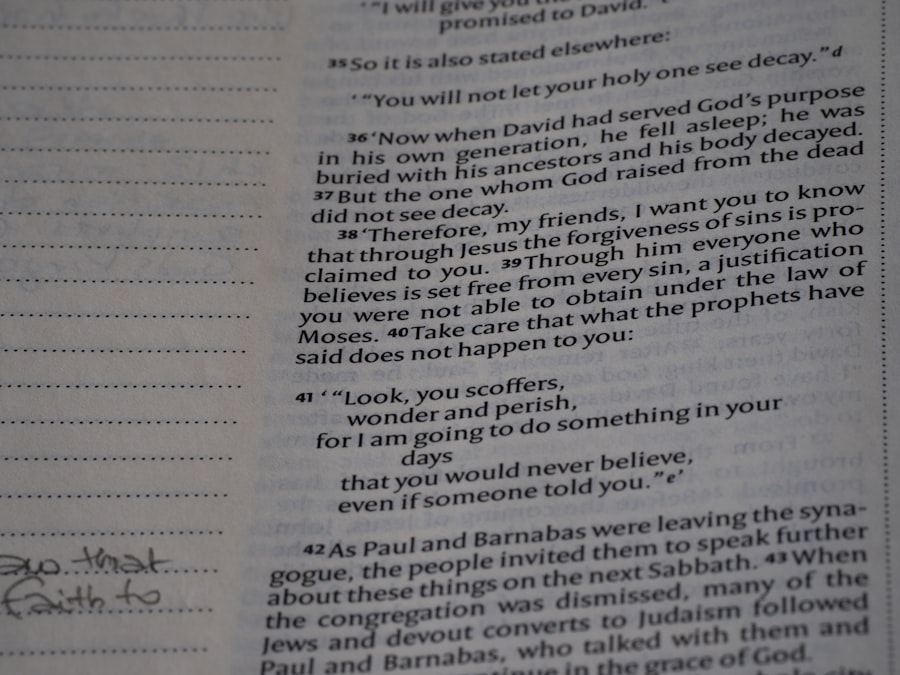 '"I will give you the
promised to David.
35 So it is also stated elsewhere:
'"You will not let your holy one see decay."d
36 'Now when David had served God's purpose
in his own generation, he fell asleep; he was
buried with his ancestors and his body decayed.
37 But the one whom God raised from the dead
did not see decay.
38 'Therefore, my friends, I want you to know
that through Jesus the forgiveness of sins is pro-
claimed to you. 39 Through him everyone who
believes is set free from every sin, a justification
you were not able to obtain under the law of
Moses. 40 Take care that what the prophets have
said does not happen to you:
41 '"Look, you scoffers,
wonder and perish,
for I am going to do something in your
days
that you would never believe,
even if someone told you."e'
42 As Paul and Barnabas were leaving the syna-
gogue, the people invited them to speak further
about these things on the next Sabbath. 43 When
the congregation was dismissed, many of the
Jews and devout converts to Judaism followed
Paul and Barnabas, who talked with them and
continue in the grace of God.
that
faith to